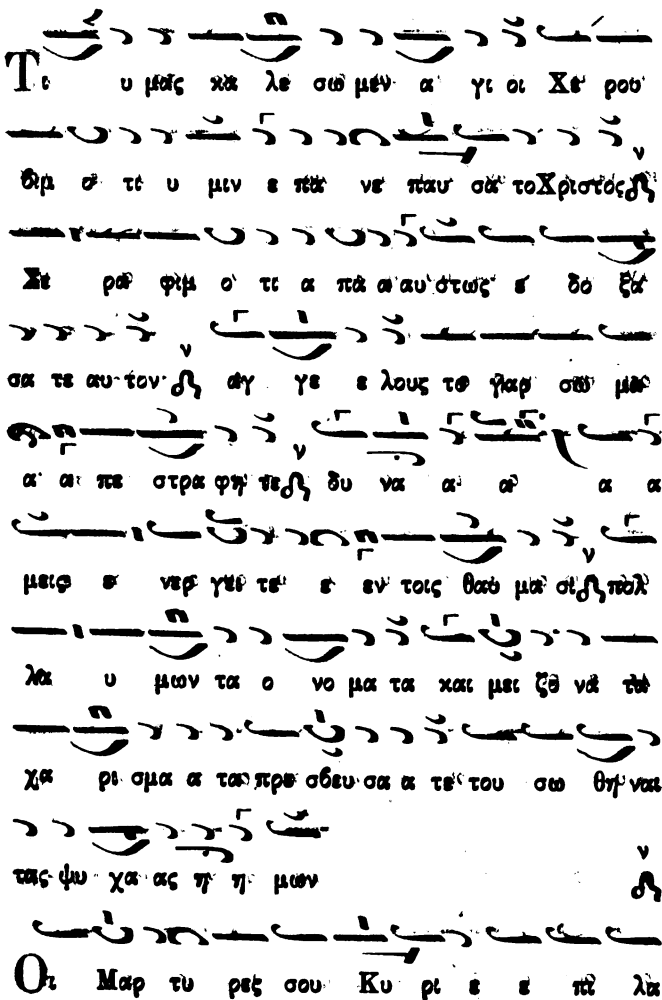 Τι υ μας κα λε σω μεν α γι οι Χε ρου
βιμ ο τι υ μιν ε πα νε παυ σα το Χριστος
Σε ρα φιμ ο τι α πα α αυ στως ε δο ξα
σα τε αυ τον αγ γε ε λους το γαρ σω μα
α α πε στρα φη τε δυ να α α α α
μεις ε νερ γει τε ε εν τοις θαυ μα σι πολ
λα υ μων τα ο νο μα τα και μει ζο να τα
χα ρι σμα α τα πρε σβευ σα α τε του σω θη ναι
τας ψυ χα ας η η μων
Οι Μαρ τυ ρες σου Κυ ρι ε ε πι λα